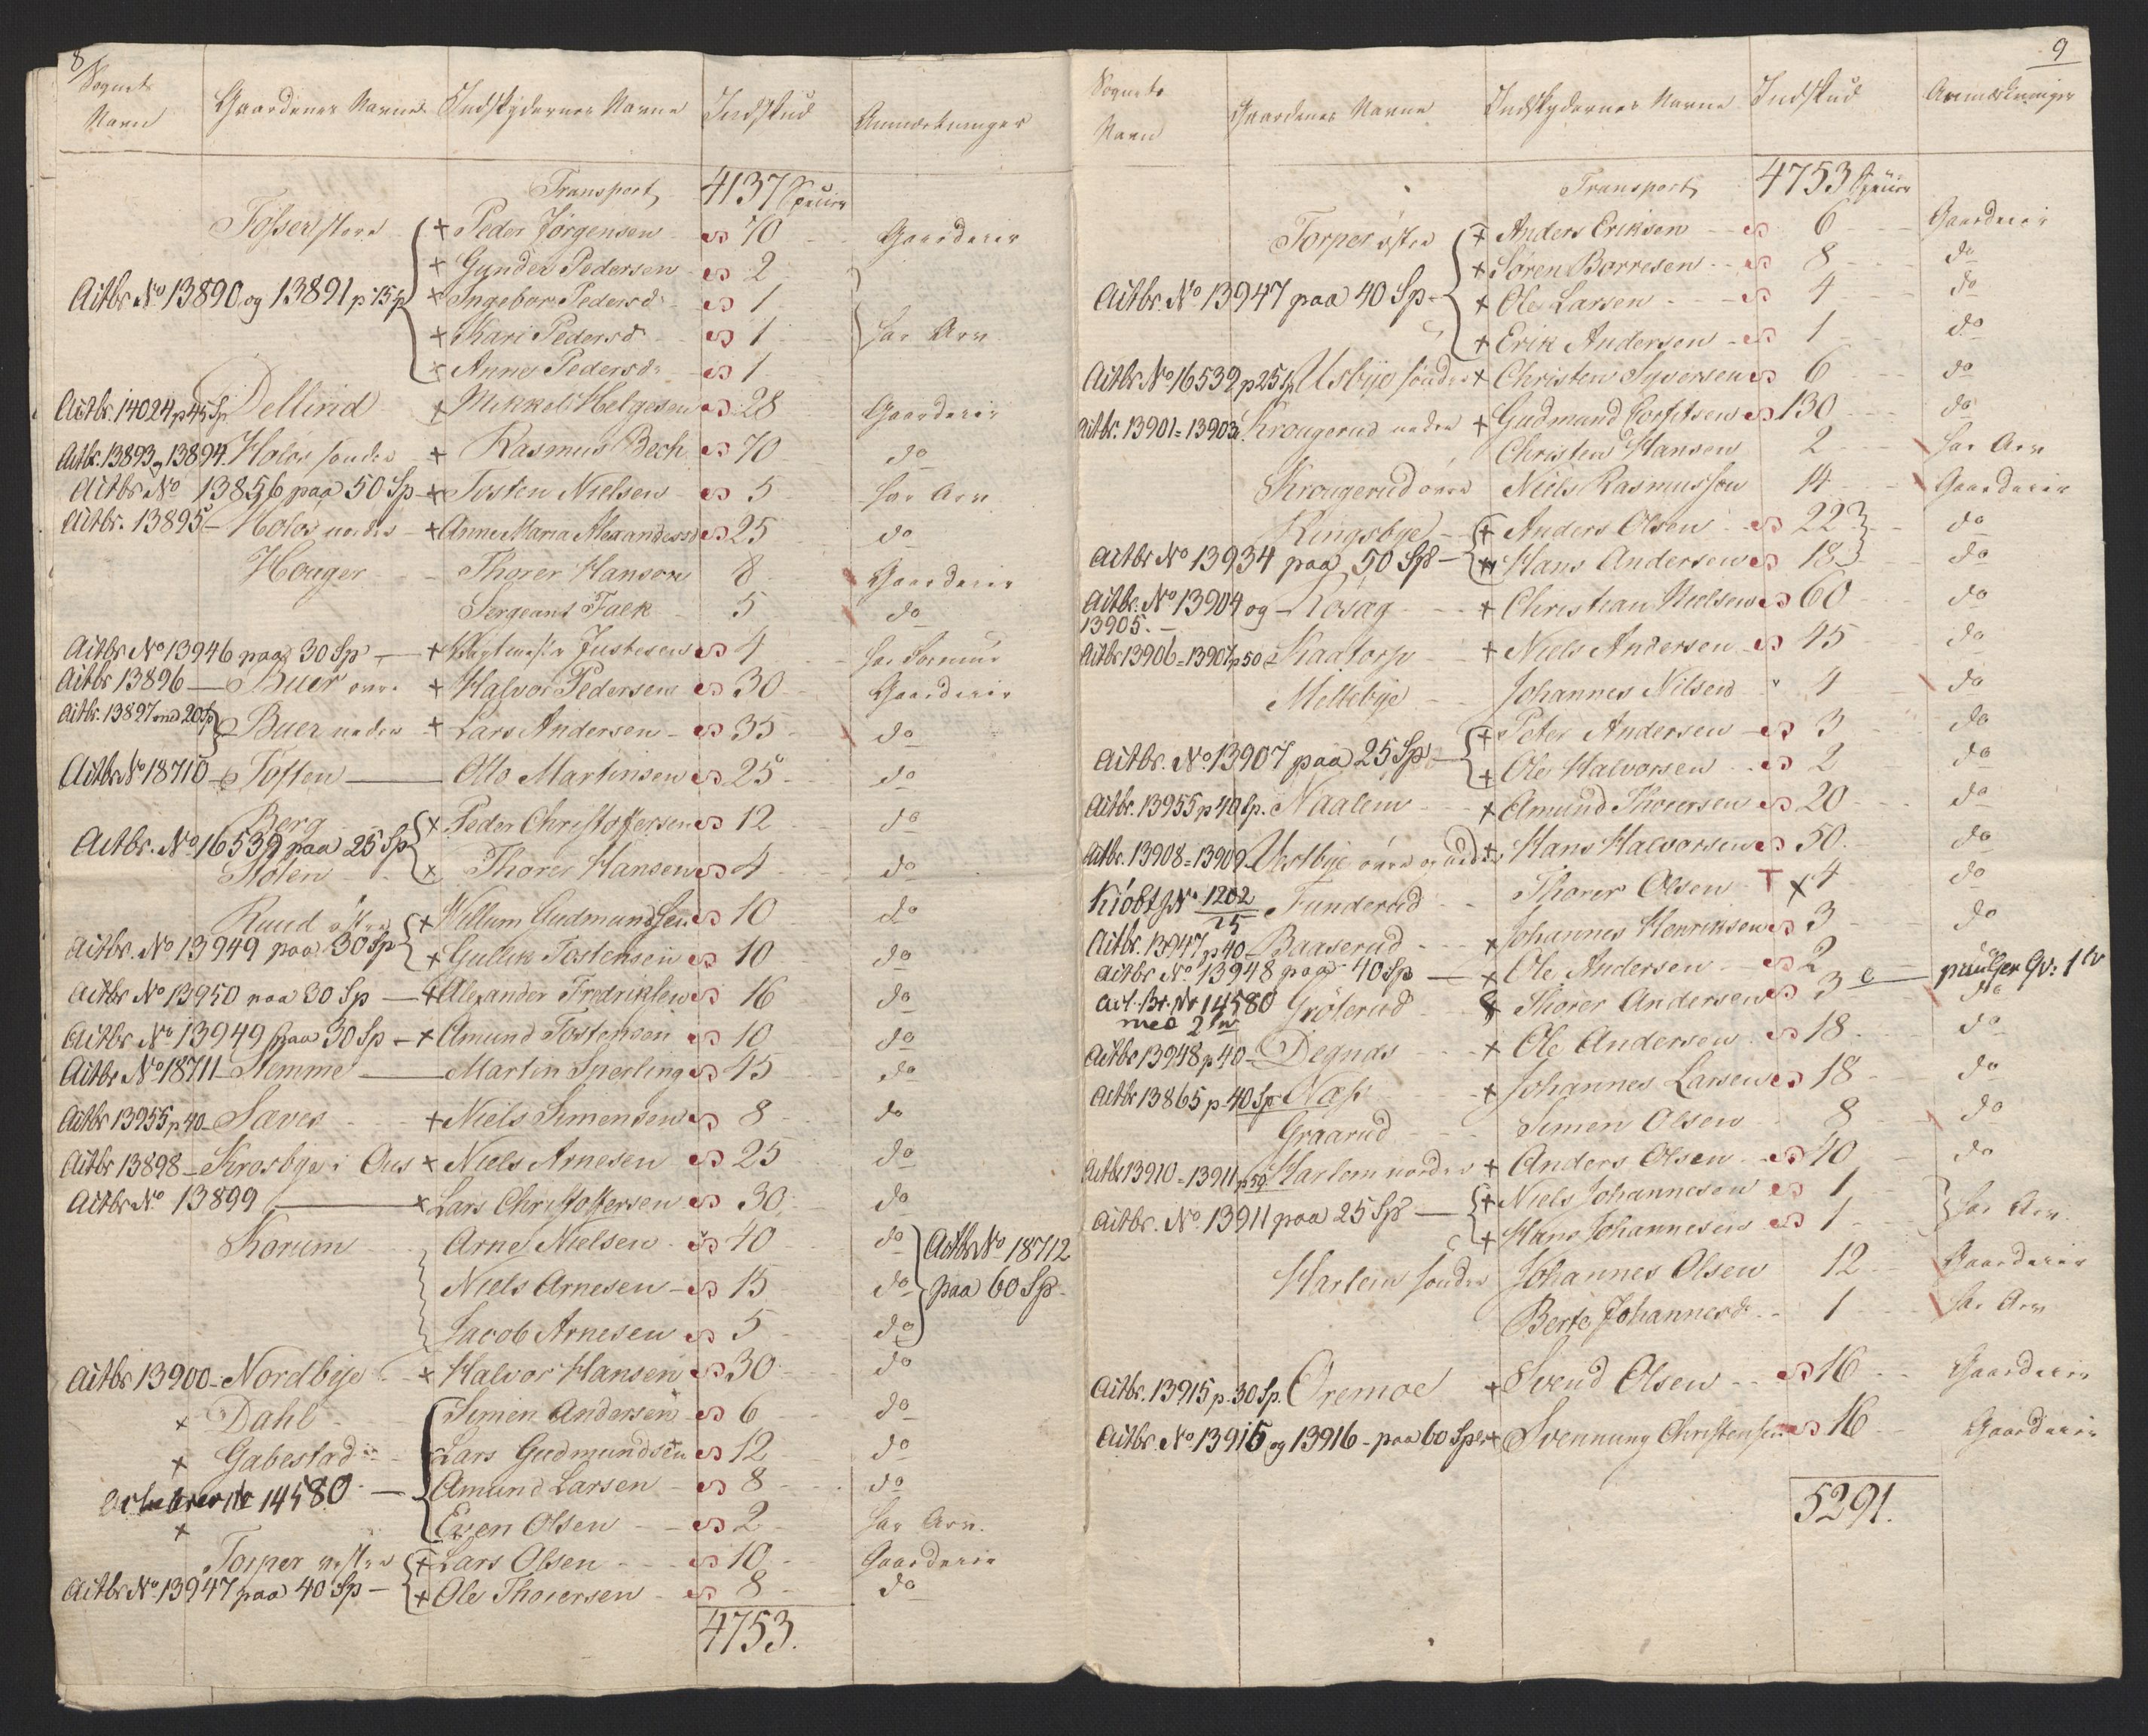 8
Sognets Navn Gaardenes Navne Indskydernes Navne Indskud Anmærkninger
Transport 4137 Specier
Tosser store + Peder Jørgensen 70 Gaarderie
+ Gunder Pedersen 2
Actbr. No 13890 og 13891 p. 15 sp + Ingebor Pedersd: 1
+ Kari Pedersd 1 har Arv
+ Anne Pedersd: 1
Actbr. 14024 p 45 Sp Dellerud + Mikkel Helgesen 28 Gaarderie
Actbr. 13893 og 13894. Holøs søndre + Rasmus Bech 70 do
Actbr No 13856 paa 50 Sp + Tosten Nielsen 5 har Arv
Actbr. 13895 - Holøs nordre + Anne Maria Alexandersd 25 do
Houger Thorer Hansen 8 Gaarderie
Sergeant Falk 5 do
Actbr No 13946 paa 30 Sp + Justesen 4
Actbr 13896 - Buer øvre + Halvor Pedersen 30 Gaarderie
Actbr. 13897 med 20 Sp Buer nedre + Lars Andersen 35 do
Actbr No 18710 - Toften Otto Martinsen 25 do
Berg + Peder Christoffersen 12 do
Actbr. No 16539 paa 25 Sp
Stolen + Thorer Hansen 4 do
Ruud østre + Willum Gudmundsen 10 do
Actbr. No 13949 paa 30 Sp + Gullik Tostensen 10 do
Actbr No 13950 paa 30 Sp + Alexander Fredriksen 16 do
Actbr No 13949 paa 30 Sp + Amund Tostensen 10 do
Actbr No 18711 - Stemme Martin Sperling 45 do
Actbr 13955 p 40 Sæves + Niels Simensen 8 do
Actbr 13898 - Krosbye i Ous + Niels Arnesen 25 do
Actbr No 13899 + Lars Christoffersen 30 do
Korum Arne Nielsen 40 do Actbr No 18712
Niels Arnesen 15 do paa 60 Sp
Jacob Arnesen 5 do
Actbr 13900 - Nordbye + Halvor Hansen 30 do
+ Dahl Simen Andersen 6 do
+ Gabestad Lars Gudmundsen 12 do
14580 Amund Larsen 8 do
+ Even Olsen 2 har Arv.
Torper vestre + Lars Olsen 10 Gaarderie
Actbr No 13947 paa 40 Sp + Ole Thorersen 8 do
4753.
9
Sognets Navn Gaardenes Navne Indskydernes Navne Indskud Anmærkninger
Transport 4753 Specier
Torper østre + Anders Eriksen 6 Gaarderie
+ Søren Borresen 8 do
Actbr. No 13947 paa 40 Sp + Ole Larsen 4 do
+ Erik Andersen 1 do
Actbr No 16539 p 25 sp Usbye søndre + Christen Syversen 6 do
Actbr. 13901 = 13903 Krougerud nedre + Gudmund Torstsen 130 do
Christen Hansen 2 har Arv
Krougerud øvre Niels Rasmussøn 14 Gaarderie
Ringsbye + Anders Olsen 22 do
Actbr No 13934 paa 50 Sp + Hans Andersen 18 do
Actbr. No 13904 og Rosag + Christian Nielsen 60 do
13905.
Actbr 13906 = 13907 p 50 Kaatorp + Niels Andersen 45 do
Mellebye Johannes Nilsen 4 do
+ Peter Andersen 3 do
Actbr. No 13907 paa 25 Sp + Ole Halvorsen 2 do
Actbr. 13955 p 40 Sp. Naalem + Amund Thorersen 20 do
Actbr. 13908 = 13909 Vestbye øvre og nedre + Hans Halvorsen 50 do
Kiöbt g No 1202/25 Funderud Thorer Olsen T x 4 do
Actbr. 13947 p 40 Baaserud + Johannes Henriksen 3 do
Actbr No 13948 paa 40 Sp + Ole Andersen 2 do
Act. Br. Nr 14580 Grøterud Thorer Andersen 3 do
med 2
Actbr 13948 p 40 - Degnæs + Ole Andersen 18 do
Actbr 13865 p 40 Sp Næs + Johannes Larsen 18 do
Graarud Simen Olsen 8 do
Actbr 13910 = 13911 p 50 Harlem nordre + Anders Olsen 40 do
+ Niels Johannesen 1
Actbr. No 13911 paa 25 Sp + Hans Johannesen 1 har Arv
Harlem søndre Johannes Olsen 12 Gaarderie
Berte Johannesd 1 har Arv
Actbr. 13915 p 30 Sp. Oremoe + Svend Olsen 16 Gaarderie
Actbr. No 13915 og 13916 - paa 60 Sp + Svennung Christensen 16 Gaarderie
5291.